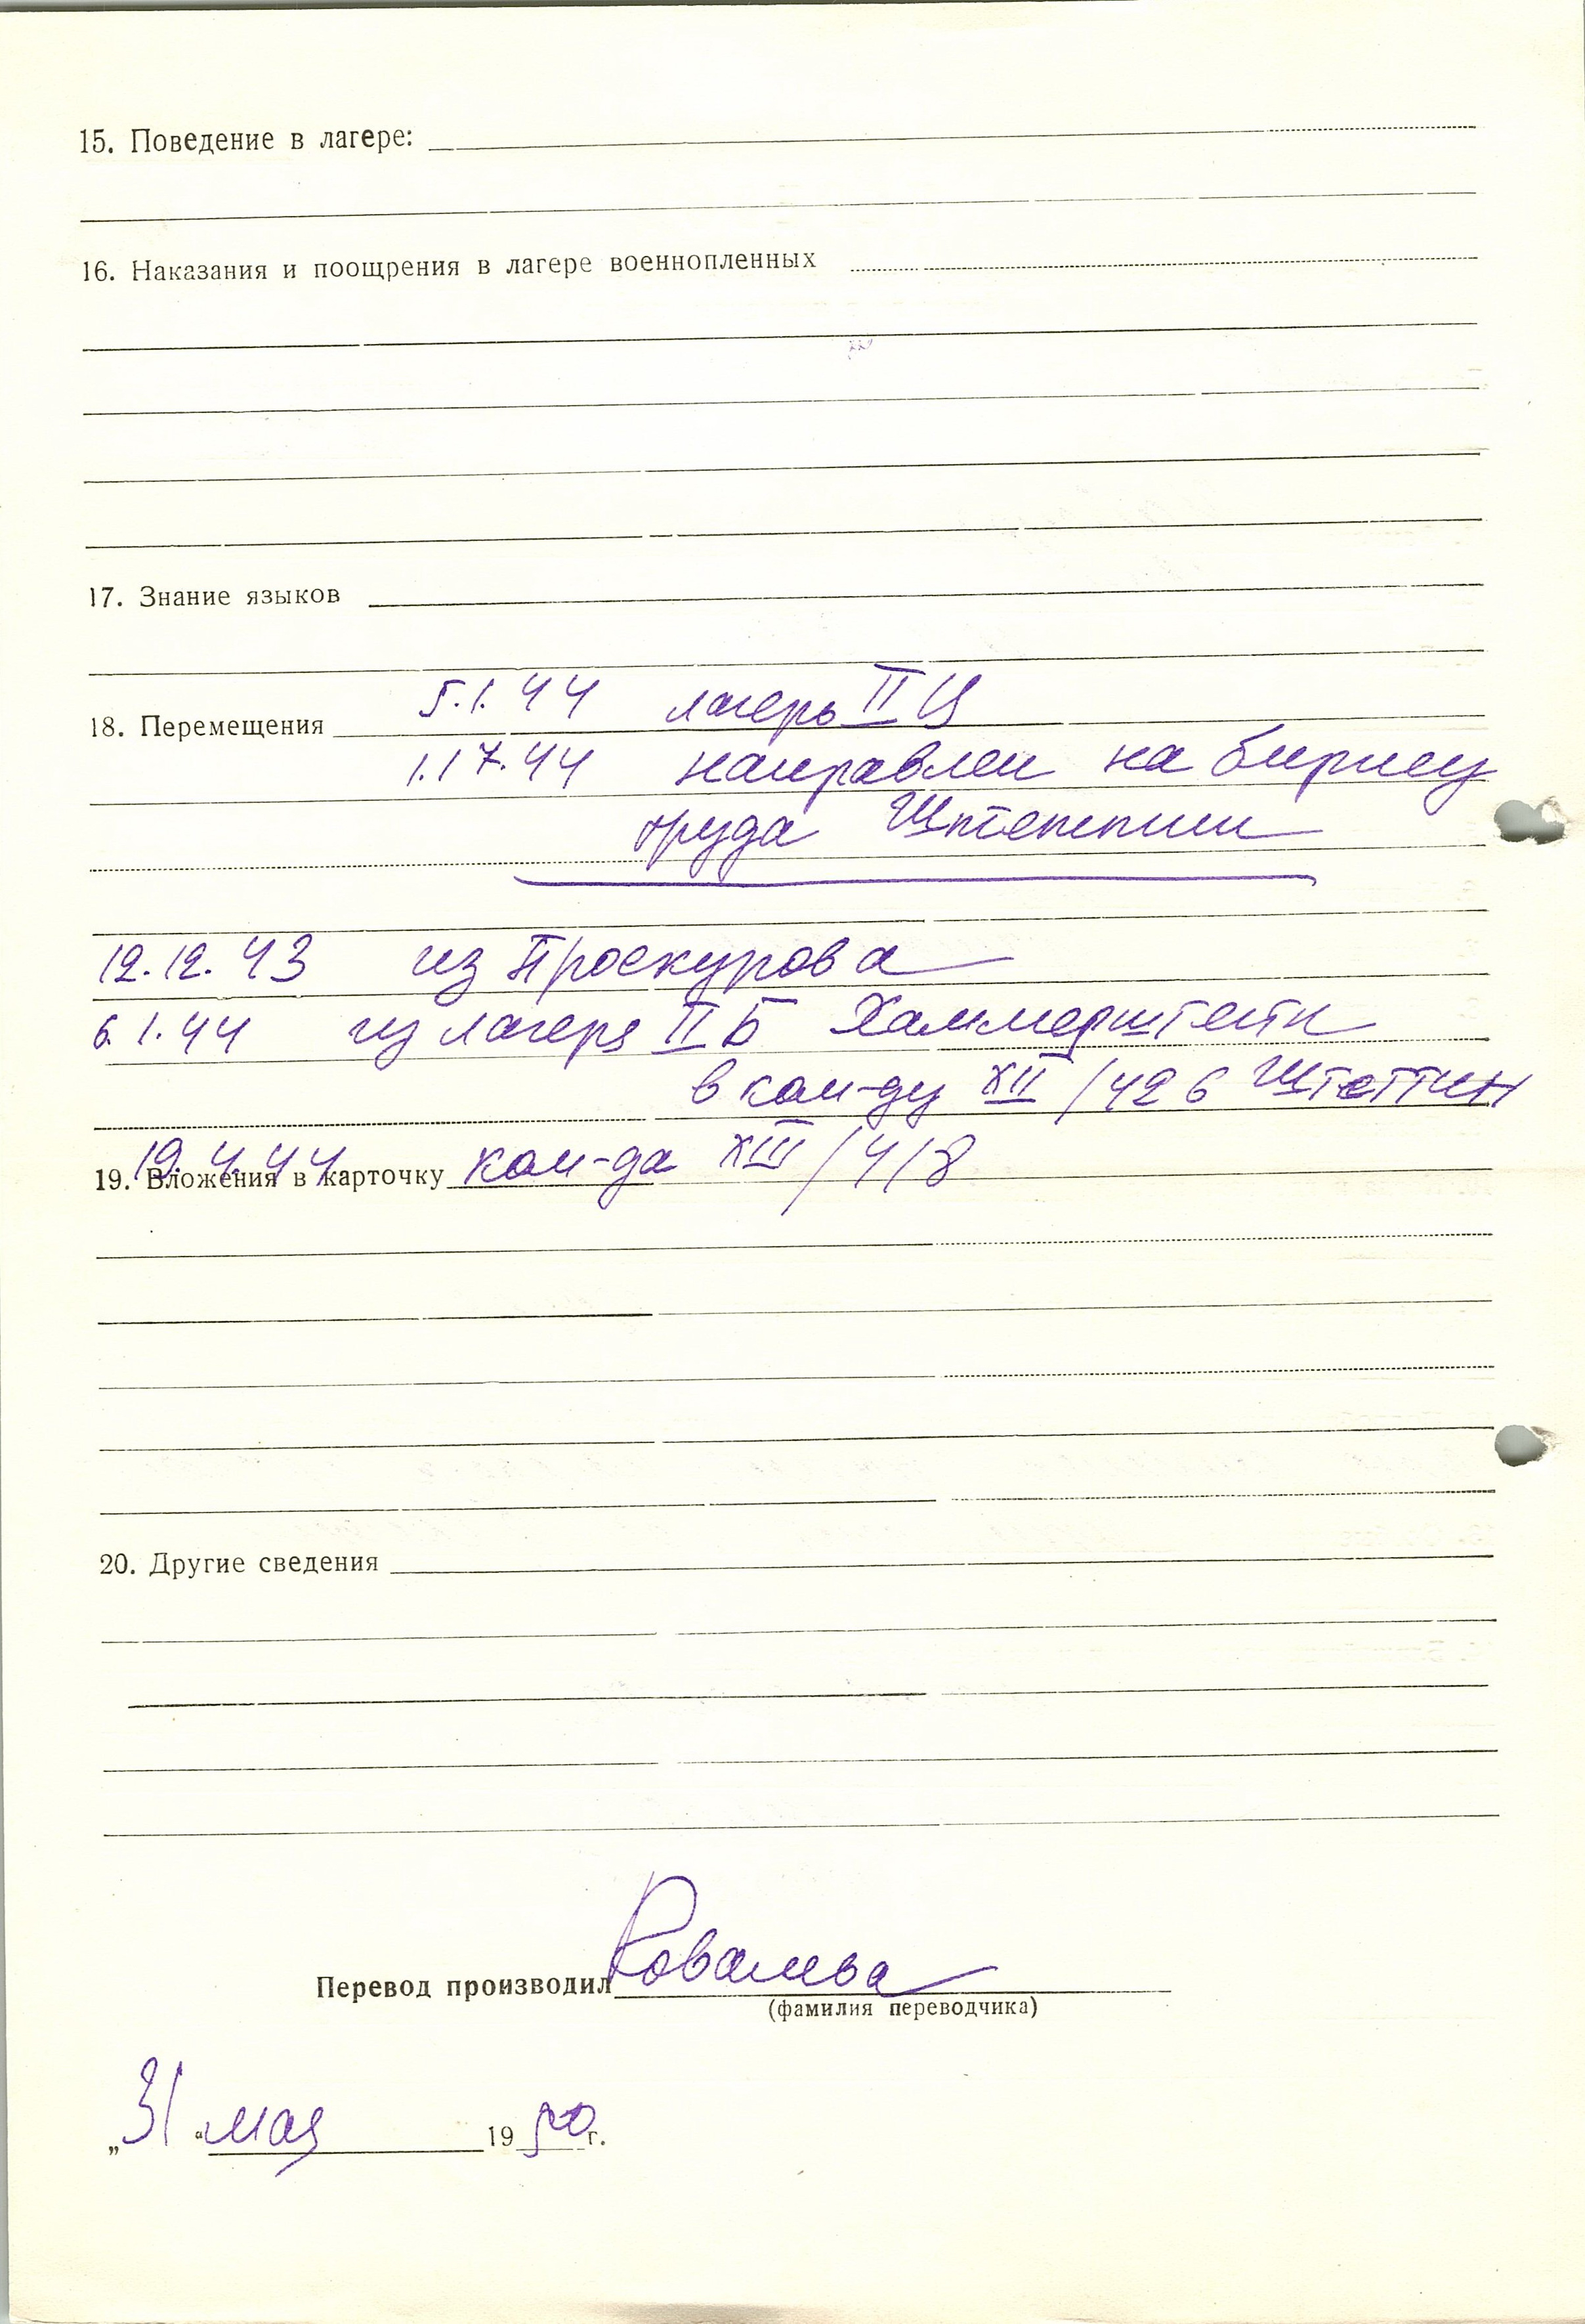 15. Поведение в лагере:
16. Наказания и поощрения в лагере военнопленных
17. Знание языков
5.1.44 лагерь II Ц
18. Перемещения
1.17.44 направлен на биржу
труда Штеттин
12.12.43 из Проскурова
6.1.44 из лагеря II Б Хаммерштейн
в ком-ду XII/426 Штеттин
19.4.44 ком-да XIII/418
19. Вложения в карточку
20. Другие сведения
Перевод производил Ковалева
(фамилия переводчика)
„31“ мая 1950 г.